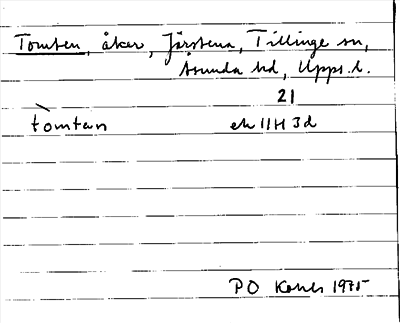 Tomten, åker, Järstena, Tillinge sn,
Åsunda hd, Upps. l.
21
tòmtan ek 11H 3d
PO 1975